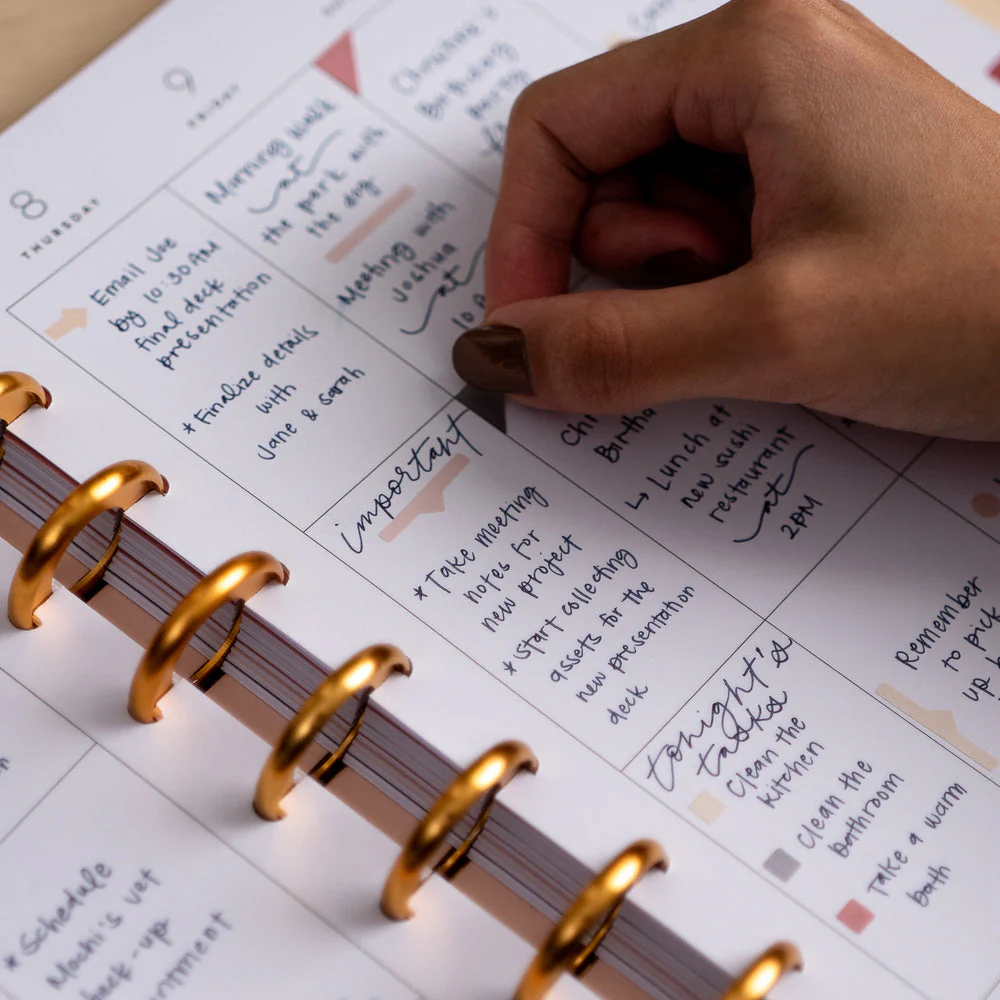 8
THURSDAY
Email Joe
by 10:30AM
final deck
presentation
*Finalize details
with
Jane & Sarah
important
*Take meeting
notes for
new project
*Start collecting
assets for the
new presentation
deck
tonight's
tasks
Clean the
kitchen
Clean the
bathroom
Take a warm
bath
9
FRIDAY
Morning Walk
at
the park with
the dog
Meeting with
Joshua
at
10
Birtha
↳ Lunch at
new sushi
restaurant
at
2PM
Remember
to pick
up
Birthday
party
*Schedule
Mochi's vet